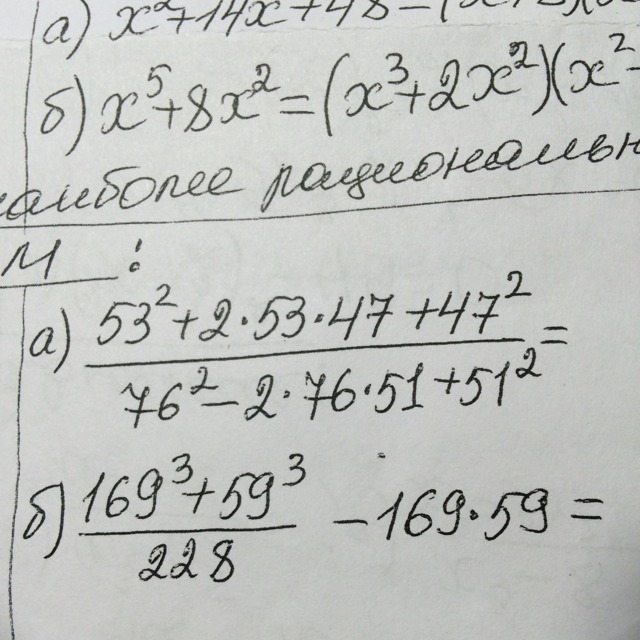 а) x²+14x+48=(x
б) x⁵+8x²=(x³+2x²)(x²-
наиболее рациональн
м :
а) (53²+2·53·47+47²)/(76²-2·76·51+51²)=
б) (169³+59³)/228 -169·59=